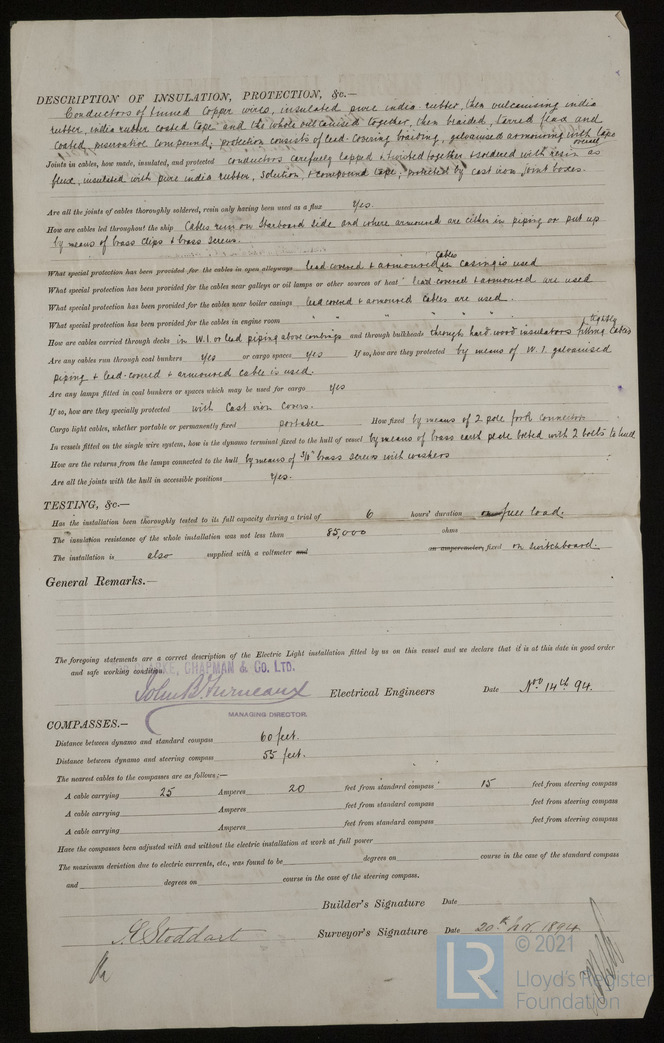 DESCRIPTION OF INSULATION, PROTECTION, &c.—
Conductors of tinned Copper wires, insulated pure india-rubber, then vulcanising india
rubber, india rubber coated tape and the whole vulcanised together, then braided, tarred flax and
coated, preservative compound; protection consists of lead-covering braiding, galvanised armouring with tape
overall
Joints in cables, how made, insulated, and protected conductors carefully lapped & twisted together & soldered with resin as
flux, insulated with pure india rubber, solution, & compound tape, protected by cast iron joint boxes.
Are all the joints of cables thoroughly soldered, resin only having been used as a flux Yes.
How are cables led throughout the ship Cables run on Starboard side and where armoured are either in piping or put up
by means of brass clips & brass screws.
What special protection has been provided for the cables in open alleyways lead covered & armoured cables in casing is used
What special protection has been provided for the cables near galleys or oil lamps or other sources of heat lead covered & armoured are used
What special protection has been provided for the cables near boiler casings lead covered & armoured cables are used.
What special protection has been provided for the cables in engine room " " " " "
How are cables carried through decks in W.I. or lead piping above coamings and through bulkheads through hard wood insulators tightly fitting cables
Are any cables run through coal bunkers yes or cargo spaces yes If so, how are they protected by means of W.I. galvanised
piping & lead-covered & armoured cable is used.
Are any lamps fitted in coal bunkers or spaces which may be used for cargo yes
If so, how are they specially protected with Cast iron Covers.
Cargo light cables, whether portable or permanently fixed portable How fixed by means of 2 pole fork connectors
In vessels fitted on the single wire system, how is the dynamo terminal fixed to the hull of vessel by means of brass earth plate bolted with 2 bolts to hull
How are the returns from the lamps connected to the hull by means of 3/8" brass screws with washers
Are all the joints with the hull in accessible positions Yes.
TESTING, &c.—
Has the installation been thoroughly tested to its full capacity during a trial of 6 hours' duration on full load.
The insulation resistance of the whole installation was not less than 85,000 ohms
The installation is also supplied with a voltmeter and an amperemeter, fixed on switchboard.
General Remarks.—
The foregoing statements are a correct description of the Electric Light installation fitted by us on this vessel and we declare that it is at this date in good order
and safe working condition.
CHAPMAN & Co. LTD.
John B. Furneaux Electrical Engineers Date Nov 14th 94.
MANAGING DIRECTOR.
COMPASSES.—
Distance between dynamo and standard compass 60 feet.
Distance between dynamo and steering compass 55 feet.
The nearest cables to the compasses are as follows:—
A cable carrying 25 Amperes 20 feet from standard compass 15 feet from steering compass
A cable carrying Amperes feet from standard compass feet from steering compass
A cable carrying Amperes feet from standard compass feet from steering compass
Have the compasses been adjusted with and without the electric installation at work at full power
The maximum deviation due to electric currents, etc., was found to be degrees on course in the case of the standard compass
and degrees on course in the case of the steering compass.
Builder's Signature Date
Stoddart Surveyor's Signature Date 20th Nov. 1894
LR
© 2021
Lloyd's Register
Foundation